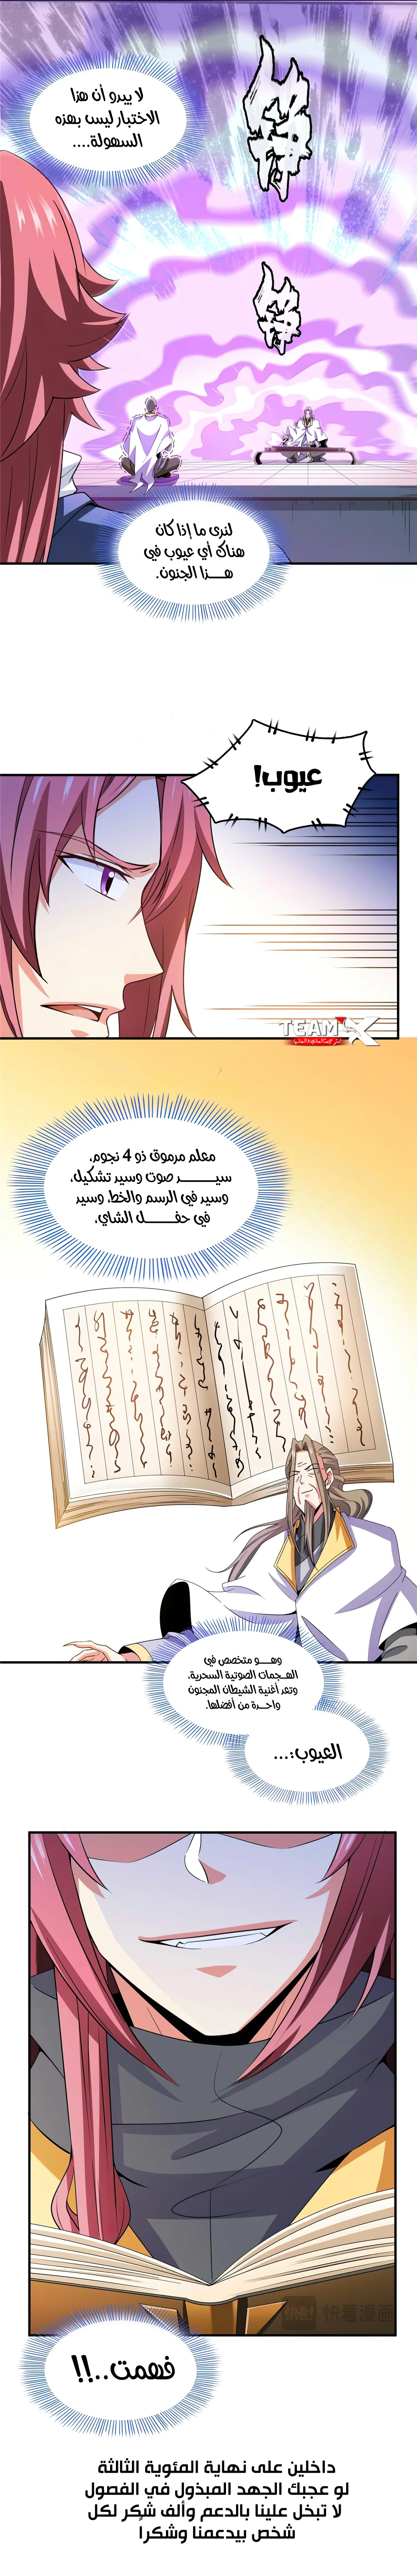 لا يبدو أن هذا
الاختبار ليس بهذه
السهولة....
لنرى ما إذا كان
هناك أي عيوب في
هـــذا الجنون.
عيوب!
TEAM X
معلم مرموق ذو 4 نجوم،
سيـــــد صوت وسيد تشكيل،
وسيد في الرسم والخط، وسيد
في حفـــــل الشاي،
وهـــو متخصص في
الهـجمات الصوتية السحرية،
وتعد أغنية الشيطان المجنون
واحـدة من أفضلها.
العيوب:...
快看漫画
فهمت..!!
داخلين على نهاية المئوية الثالثة
لو عجبك الجهد المبذول في الفصول
لا تبخل علينا بالدعم وألف شكر لكل
شخص بيدعمنا وشكراً